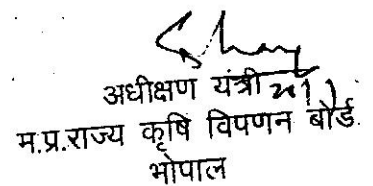 अधीक्षण यंत्री
म.प्र.राज्य कृषि विपणन बोर्ड
भोपाल